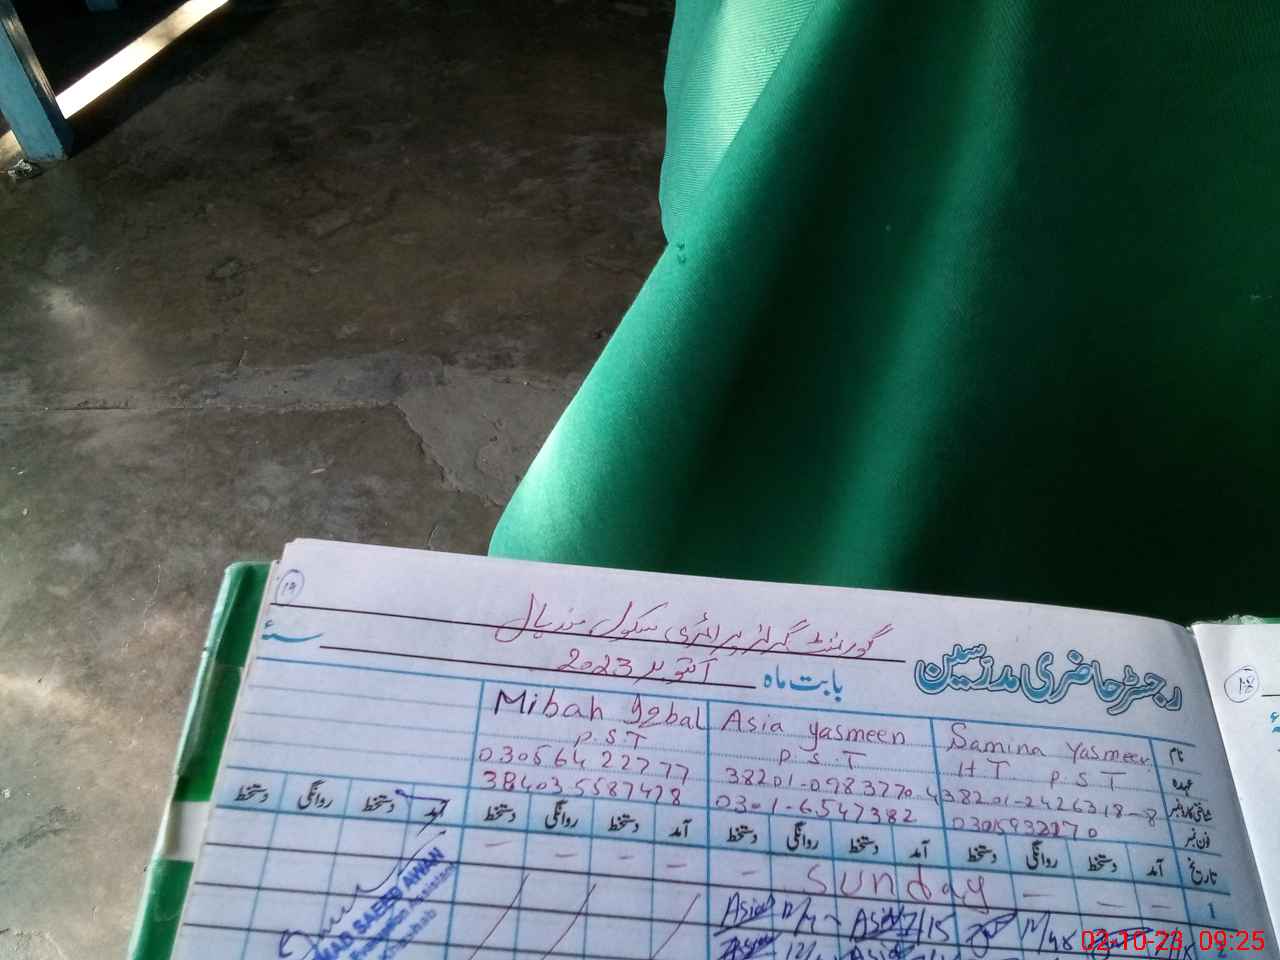 گورنمنٹ گرلز پرائمری سکول مندیال
رجسٹر حاضری مدرسین
بابت ماہ اکتوبر 2023
سنہء
نام Samina Yasmeen Asia Yasmeen Mibah Iqbal
عہدہ HT P.S.T P.S.T P.S.T
شناختی کارڈ نمبر 38201-2426318-8 38201-0983770-4 03056422777
فون نمبر 0301-6547382 38403-5587478
تاریخ آمد دستخط روانگی دستخط آمد دستخط روانگی دستخط آمد دستخط روانگی دستخط آمد دستخط روانگی دستخط
1 Sunday
2 Asia 7/15 Asia
SAEED AWAN
02-10-23, 09:25